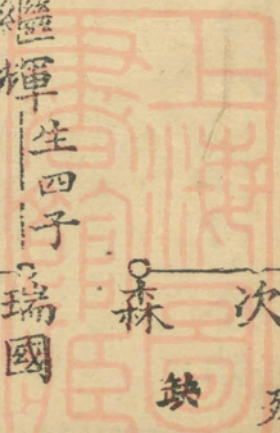 次
森
缺
繼輝
生四子
瑞國